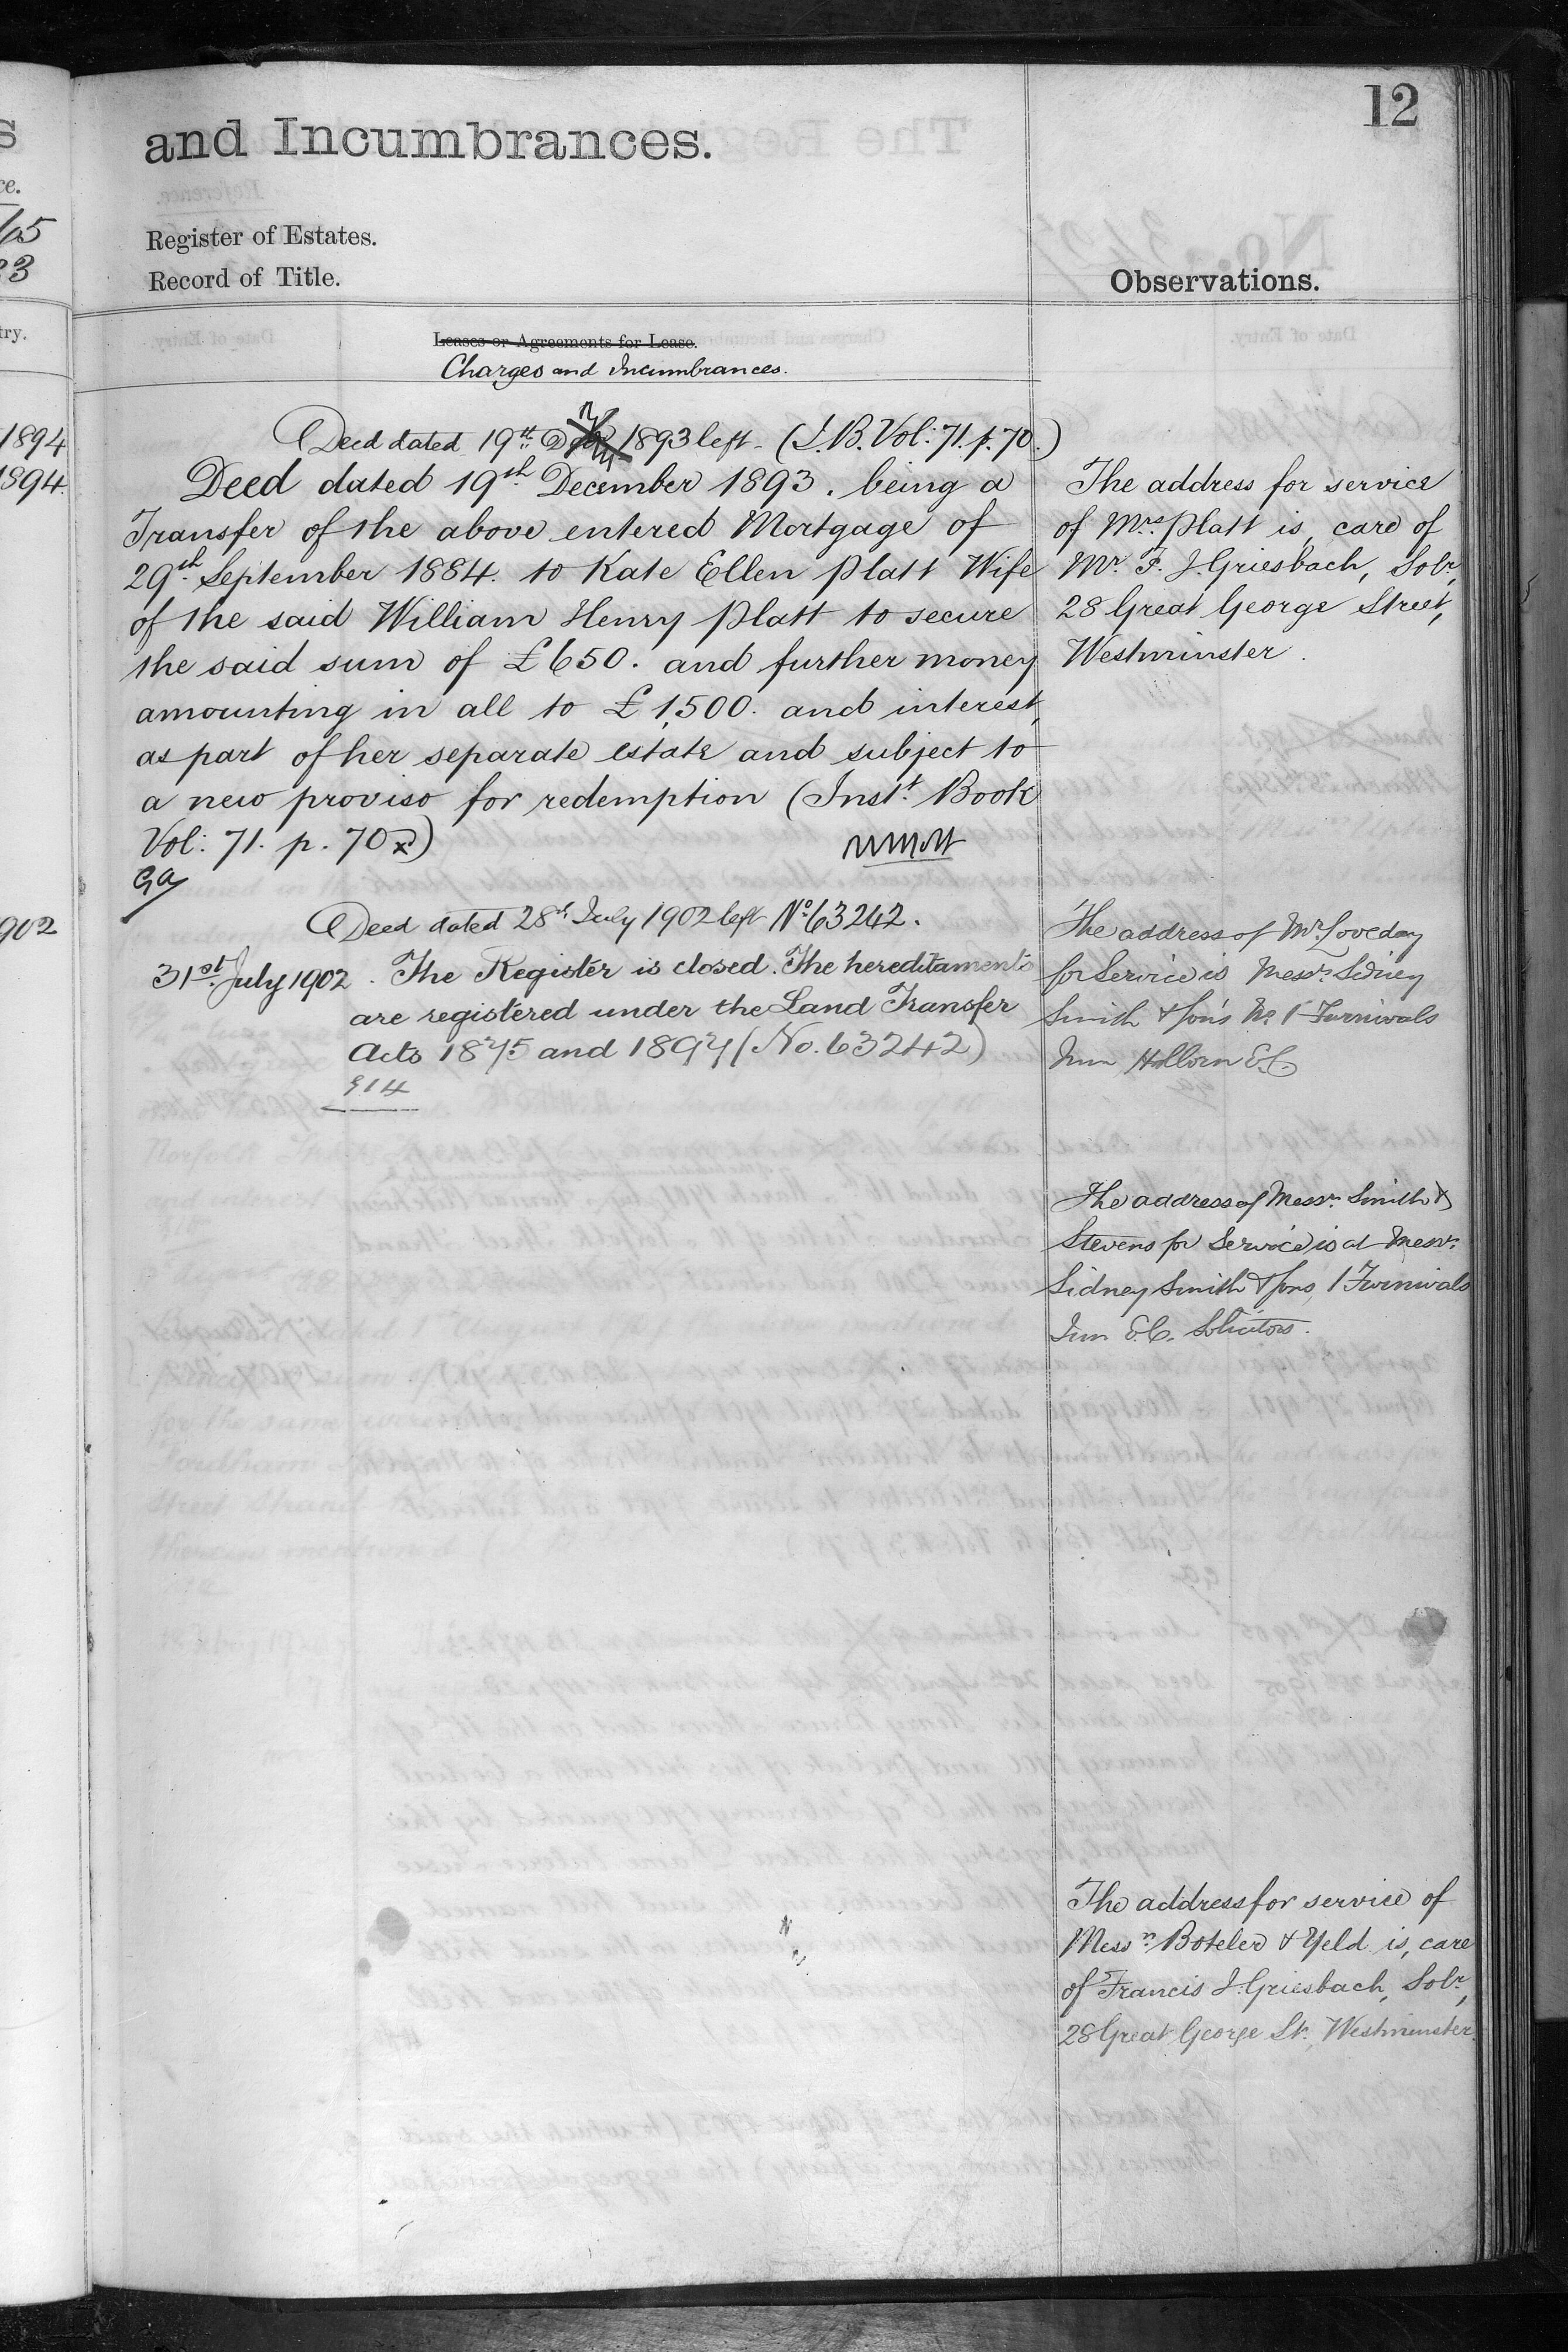 12
and Incumbrances.
Register of Estates.
Record of Title.
Observations.
Leases or Agreements for Lease.
Charges and Incumbrances.
Deed dated 19th Decr 1893 left - (I.B. Vol: 71. p. 70.)
Deed dated 19th December 1893. being a
Transfer of the above entered Mortgage of
29th September 1884. to Kate Ellen Platt Wife
of the said William Henry Platt to secure
the said sum of £650. and further money
amounting in all to £1,500. and interest,
as part of her separate estate and subject to
a new proviso for redemption (Inst. Book
Vol: 71. p. 70)
Deed dated 28th July 1902 left No 63242.
31st July 1902. The Register is closed. The hereditaments
are registered under the Land Transfer
Acts 1875 and 1897 (No. 63242)
914
The address for service
of Mrs Platt is, care of
Mr. F. J. Griesbach, Solr,
28 Great George Street,
Westminster.
The address of Mr. Loveday
for Service is Messrs. Sidney
Smith & Sons No. 1 Furnivals
Inn Holborn E.C.
The address of Messrs. Smith &
Stevens for Service is at Messrs.
Sidney Smith & Sons, 1 Furnivals
Inn E.C. Solicitors.
The address for service of
Messrs. Boteler & Yeld is, care
of Francis J. Griesbach, Solr,
28 Great George St. Westminster.
1894
1894.
1902